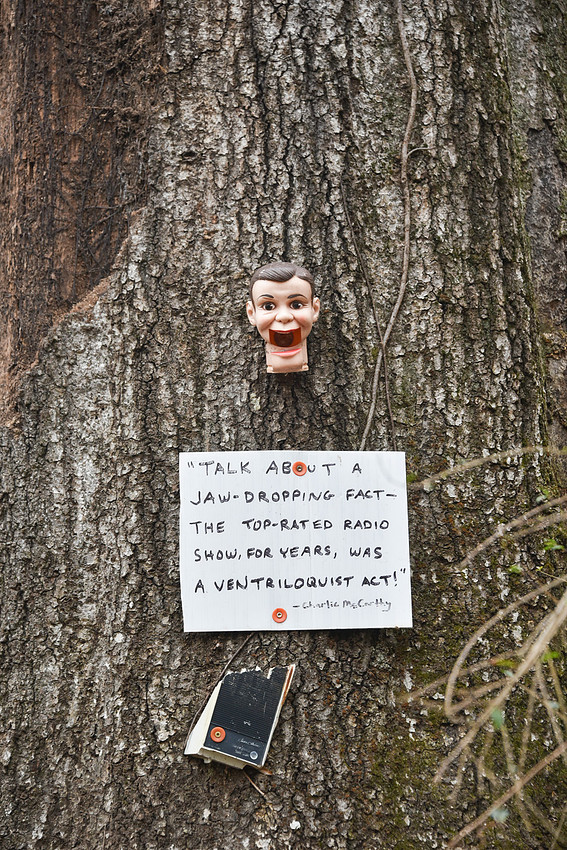 "TALK ABOUT A
JAW-DROPPING FACT-
THE TOP-RATED RADIO
SHOW, FOR YEARS, WAS
A VENTRILOQUIST ACT!"
- Charlie McCarthy